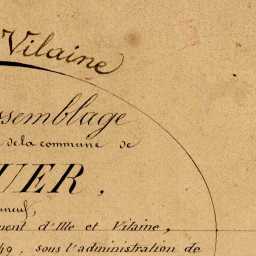 Vilaine
ssemblage
de la commune de
UER,
neuf,
ment d'Ille et Vilaine,
49, sous l'administration de